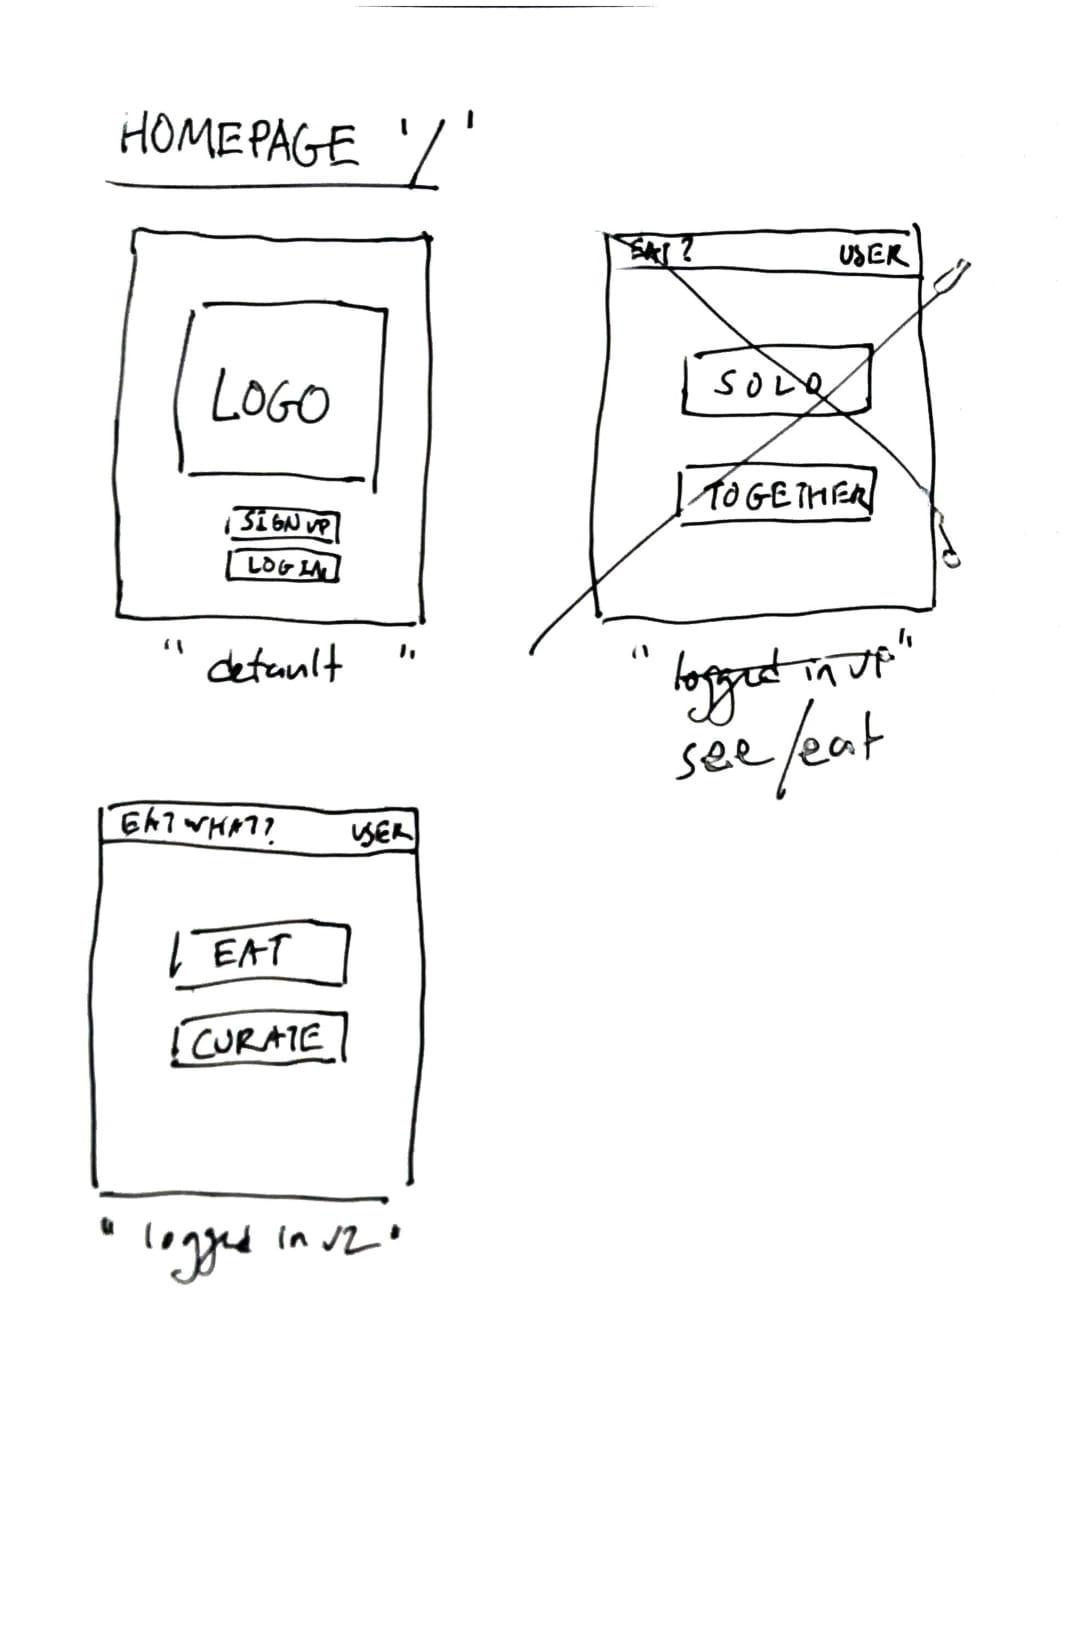 HOMEPAGE '/'
LOGO
SIGN UP
LOG IN
"default"
EAT? USER
SOLO
TOGETHER
"logged in
see /eat
EAT WHAT? USER
EAT
CURATE
"logged in v2"